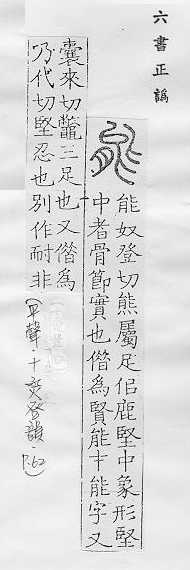 六書正譌
能奴登切熊屬足佀鹿堅中象形堅
中者骨節實也偺為賢能才能字又
囊來切鼈三足也又偺為
乃代切堅忍也別作耐非
(平聲·十七登韻·P.62)